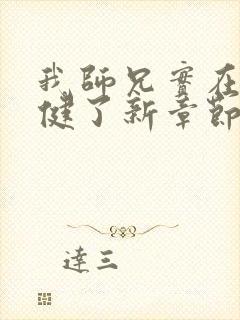 我師兄實在
健了新章節
達三